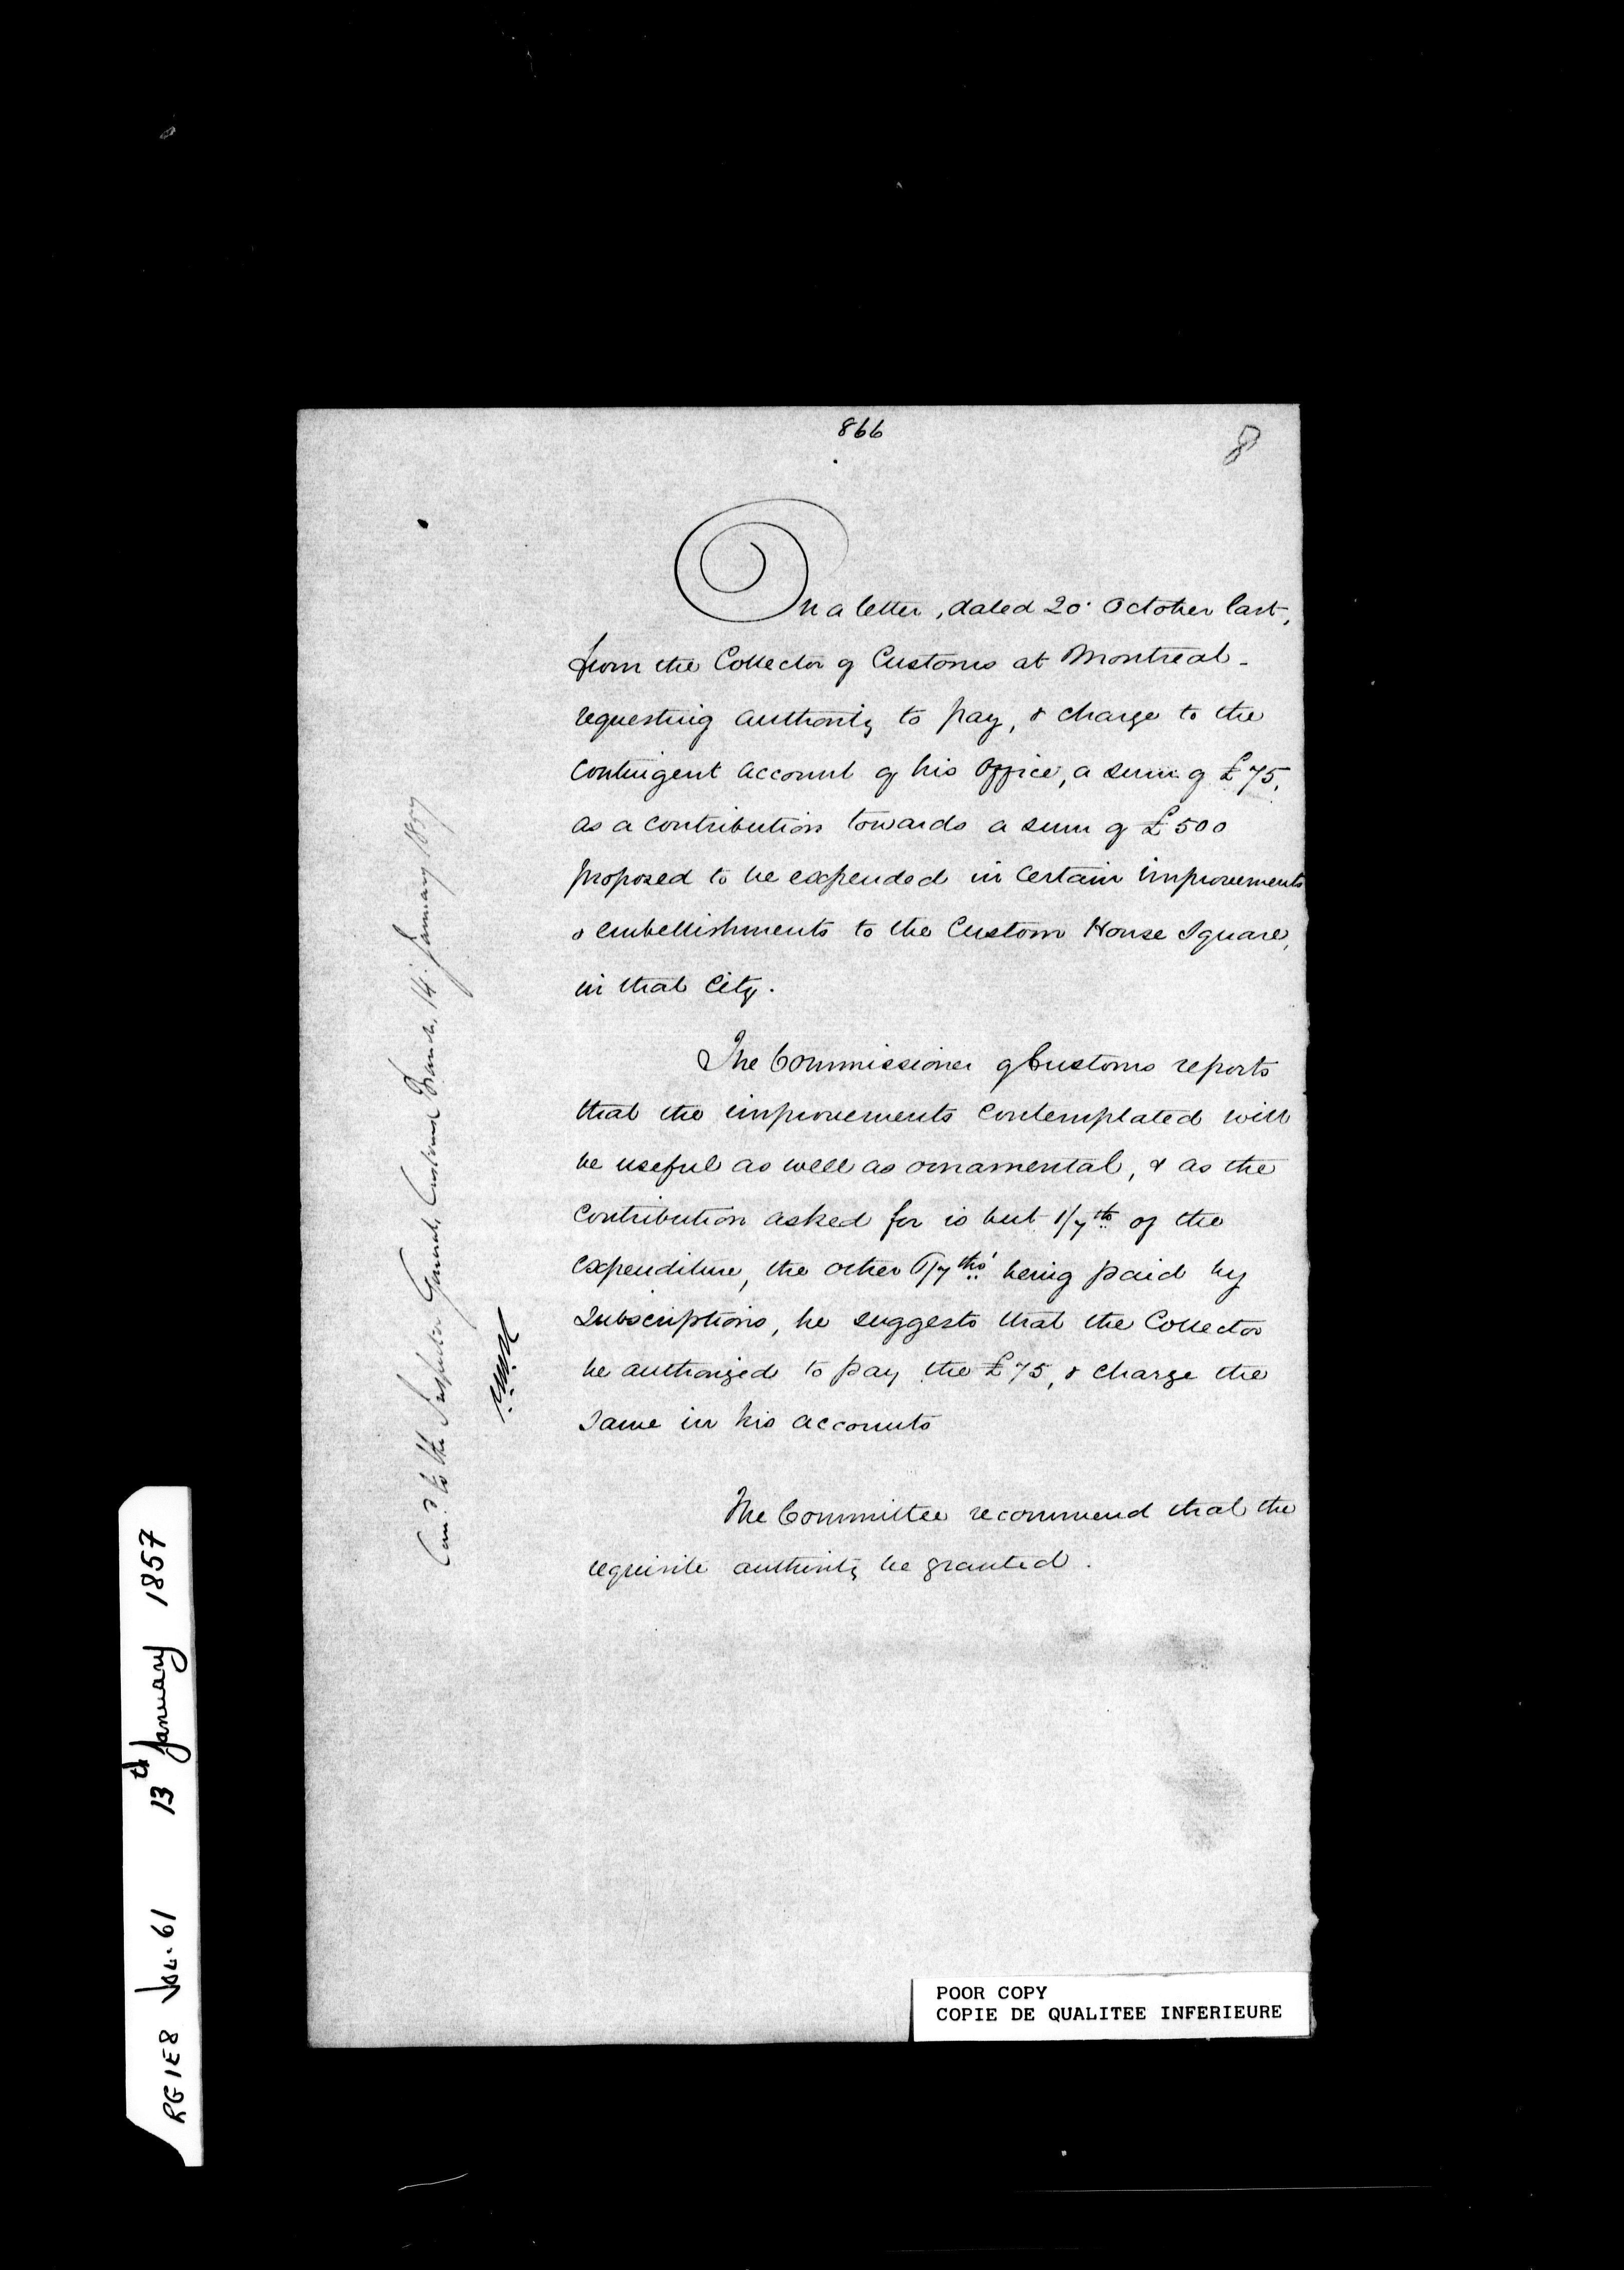 866
8
On a letter, dated 20' October last,
from the Collector of Customs at Montreal -
requesting authority to pay, & charge to the
Contingent Account of his Office, a sum of £75,
as a contribution towards a sum of £500
proposed to be expended in certain improvements
& embellishments to the Custom House Square,
in that City.
The Commissioner of Customs reports
that the improvements contemplated will
be useful as well as ornamental, & as the
contribution asked for is but 1/7th of the
expenditure, the other 6/7ths being paid by
Subscriptions, he suggests that the Collector
be authorized to pay the £75, & charge the
Same in his accounts
The Committee recommend that the
requisite authority be granted.
to the Inspector General, Customs Branch, 14' January 1857
RG1E8 Vol. 61 13th January 1857
POOR COPY
COPIE DE QUALITEE INFERIEURE